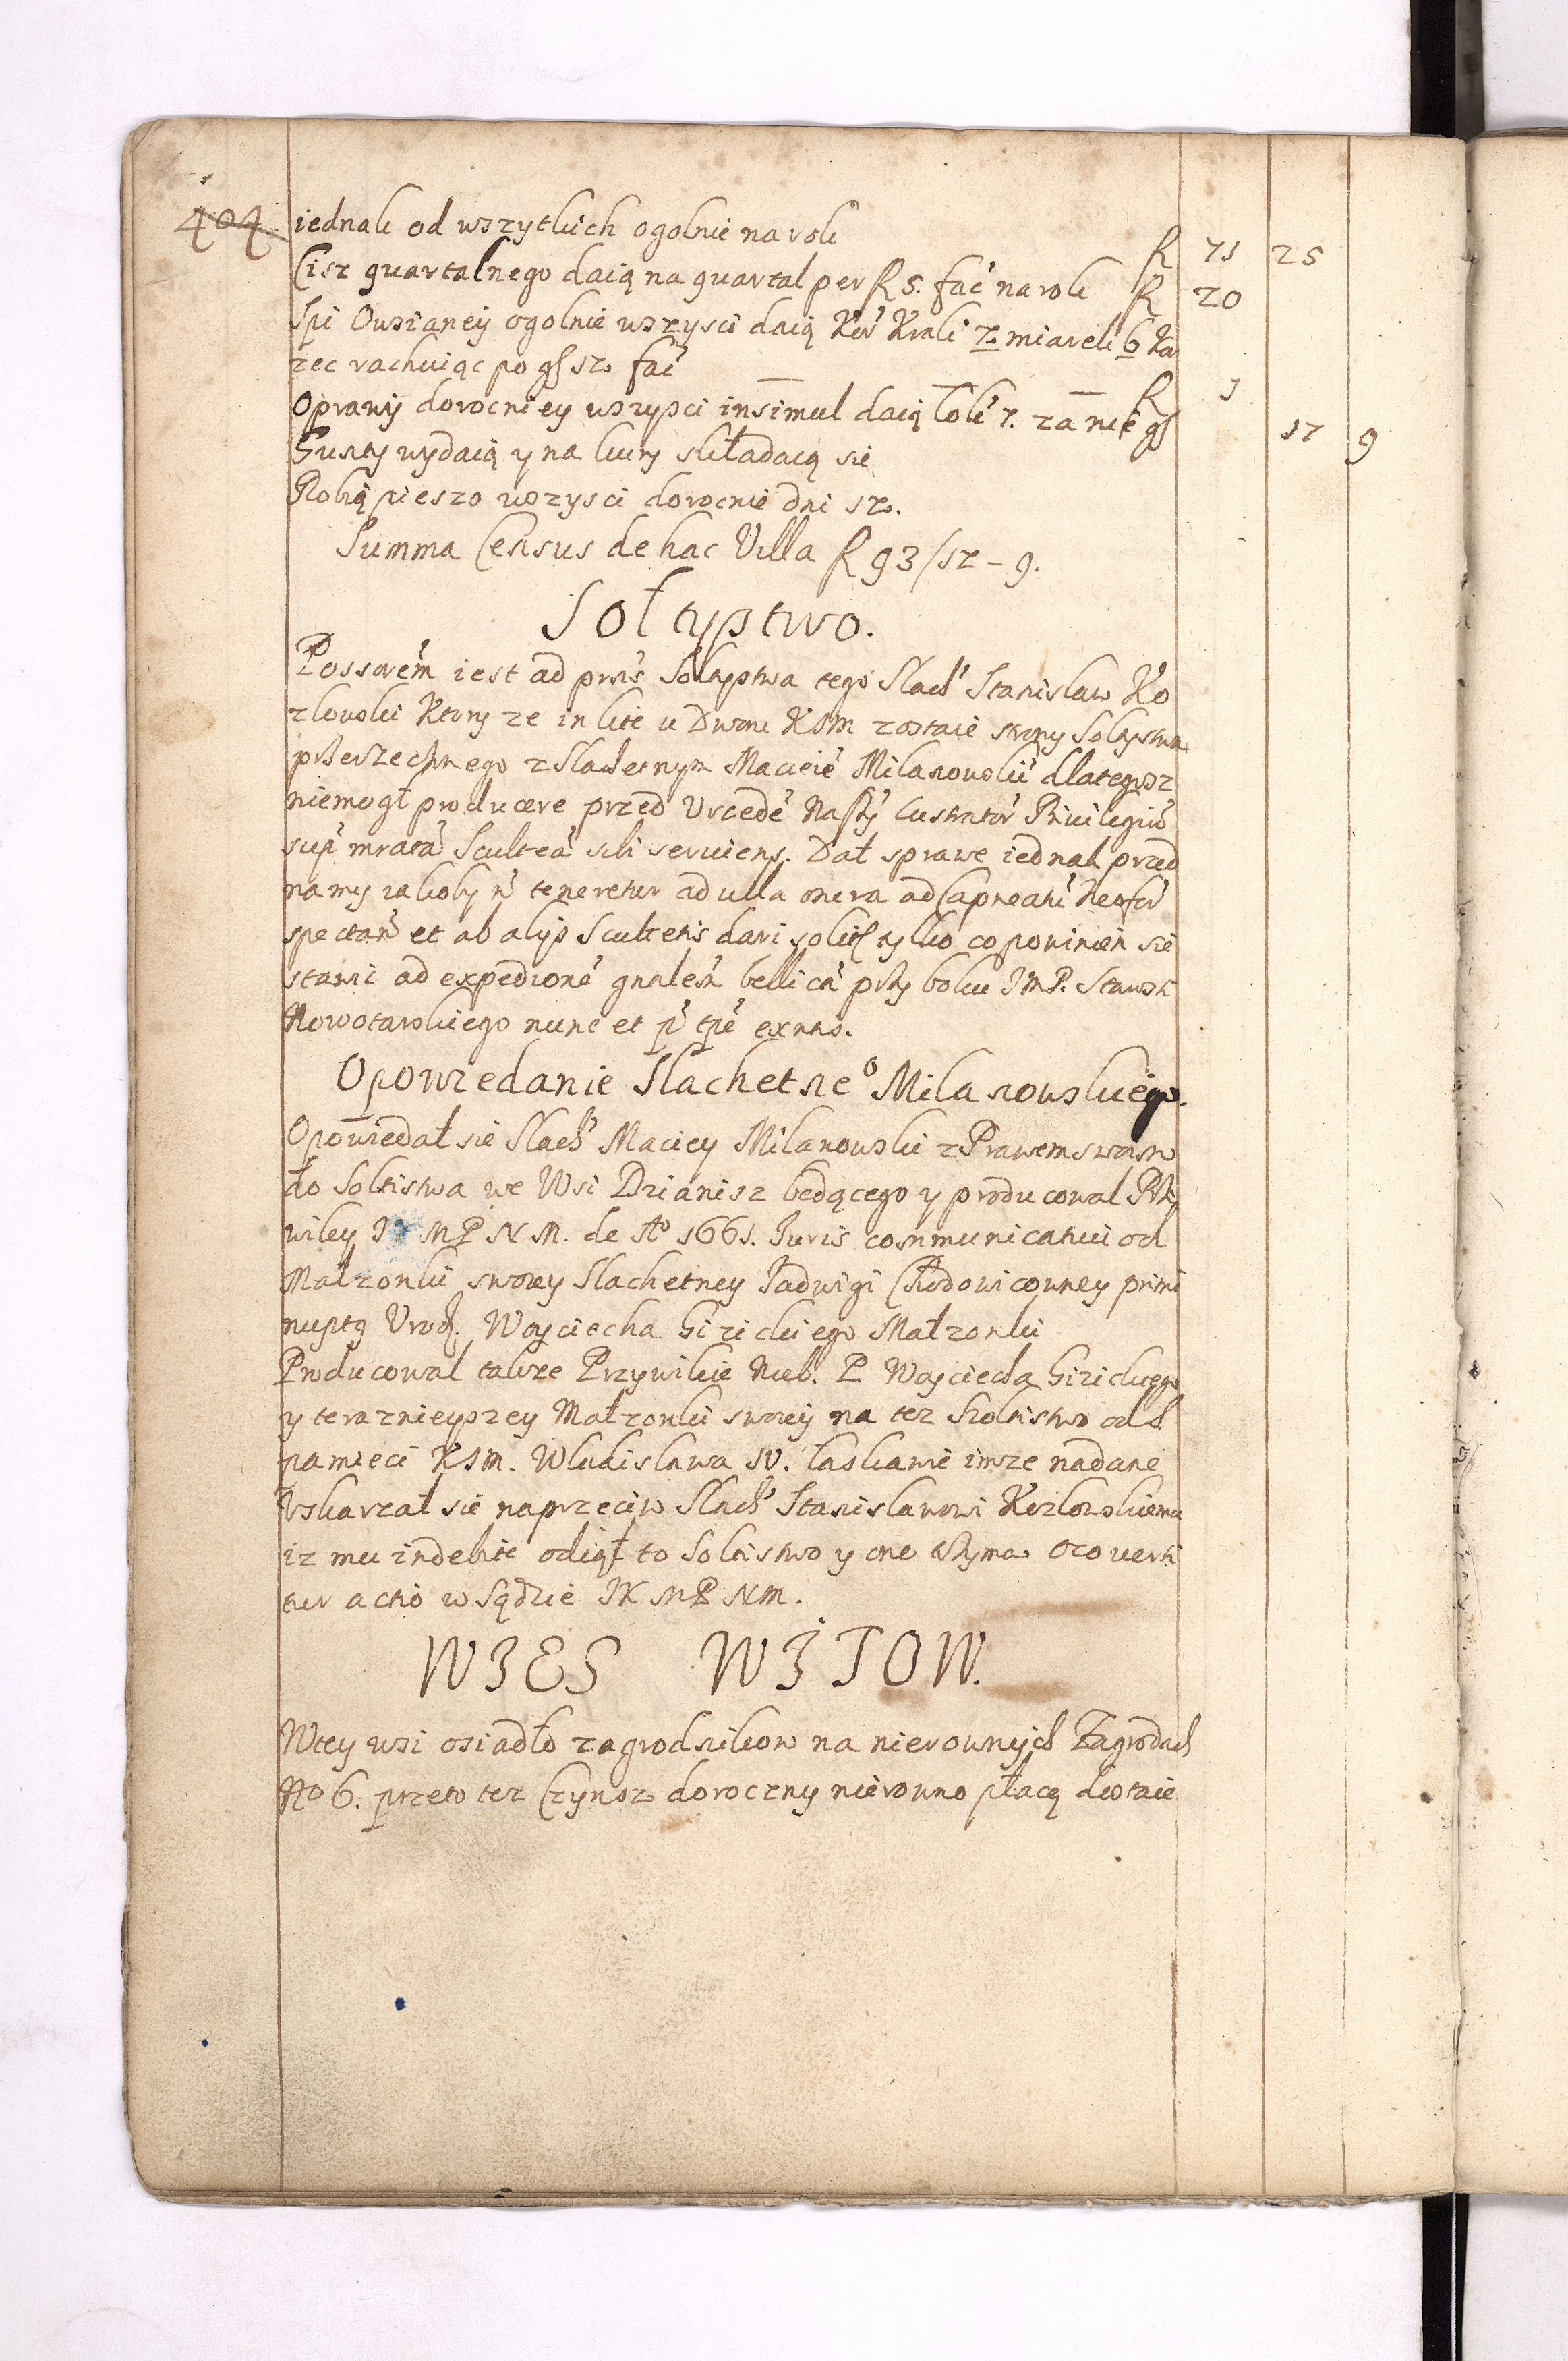 404 iednak od wszytkich ogolnie na rok R 71 25
Cisz quartalnego daią na quartal per R 5. fać na rok R 20
Spi Owsianey ogolnie wszysci daią Kor Krak 7. miarek 6 Ko
rzec rachuiąc po gs 12 fać R 1
Oprawy doroczniey wszysci insimul daią łok 7. za nie gs 17 9
Gusty wydaią y na kury składaią się
Robią pieszo wszysci dorocnie dni 12.
Summa Census de hac Villa R 93/12-9.
Sołtystwo.
Possorem iest ad prns Sołtystwa tego Slach Stanislaw Ko
zlowski Ktory ze in lite u Dworu KJM zostaie strony Soltystwa
przerzechnego z Slachetnym Macieie Milanowski dlategosz
niemogł producere przed Urzede Nasży Lustrator Priuilegiu
sup mrata Sculteã sibi seruiens. Dał sprawe iednak przed
namy iakoby n teneretur ad ulla onera ad Capneatu Neofor
spectan et ab alys Scultetis dari solit tylko co powinien sie
stawic ad expedione gnalem bellica przy boku JMP. Starosti
Nowotarskiego nunc et p tpe exnts.
Opowiedanie Slachetne⁰ Milanowskiego.
Opowiedał sie Slach Maciey Milanowski z Prawem swoim
do Soltistwa we Wsi Dzianisz będącego y producowal Prz
wiley J M P N M. de A⁰ 1661. Iuris communicatiui od
Małzonki swoiey Slachetney Jadwigi Chodowicowney primi
nuptę Urod. Woyciecha Gizickiego Małzonki
Producowal takze Przywileie Nieb. P. Woyciecha Gizickiego
y teraznieyszey Małzonki swoiey na tez Szoltistwo od S
pamieci KJM. Wladislawa IV. łaskawie imze nadane
Uskarzał sie naprzeciw Slach Stanislawowi Kozlowskiemu
iz mu indebite odiął to Soltistwo y one trzyma oco verti
tur actio w Sądzie JK M P N M.
WIES WITOW.
Wtey wsi osiadło zagrodnikow na nierownych Zagrodach
N⁰ 6. przeto tez Czynsz doroczny nierowno płacą dwotaie